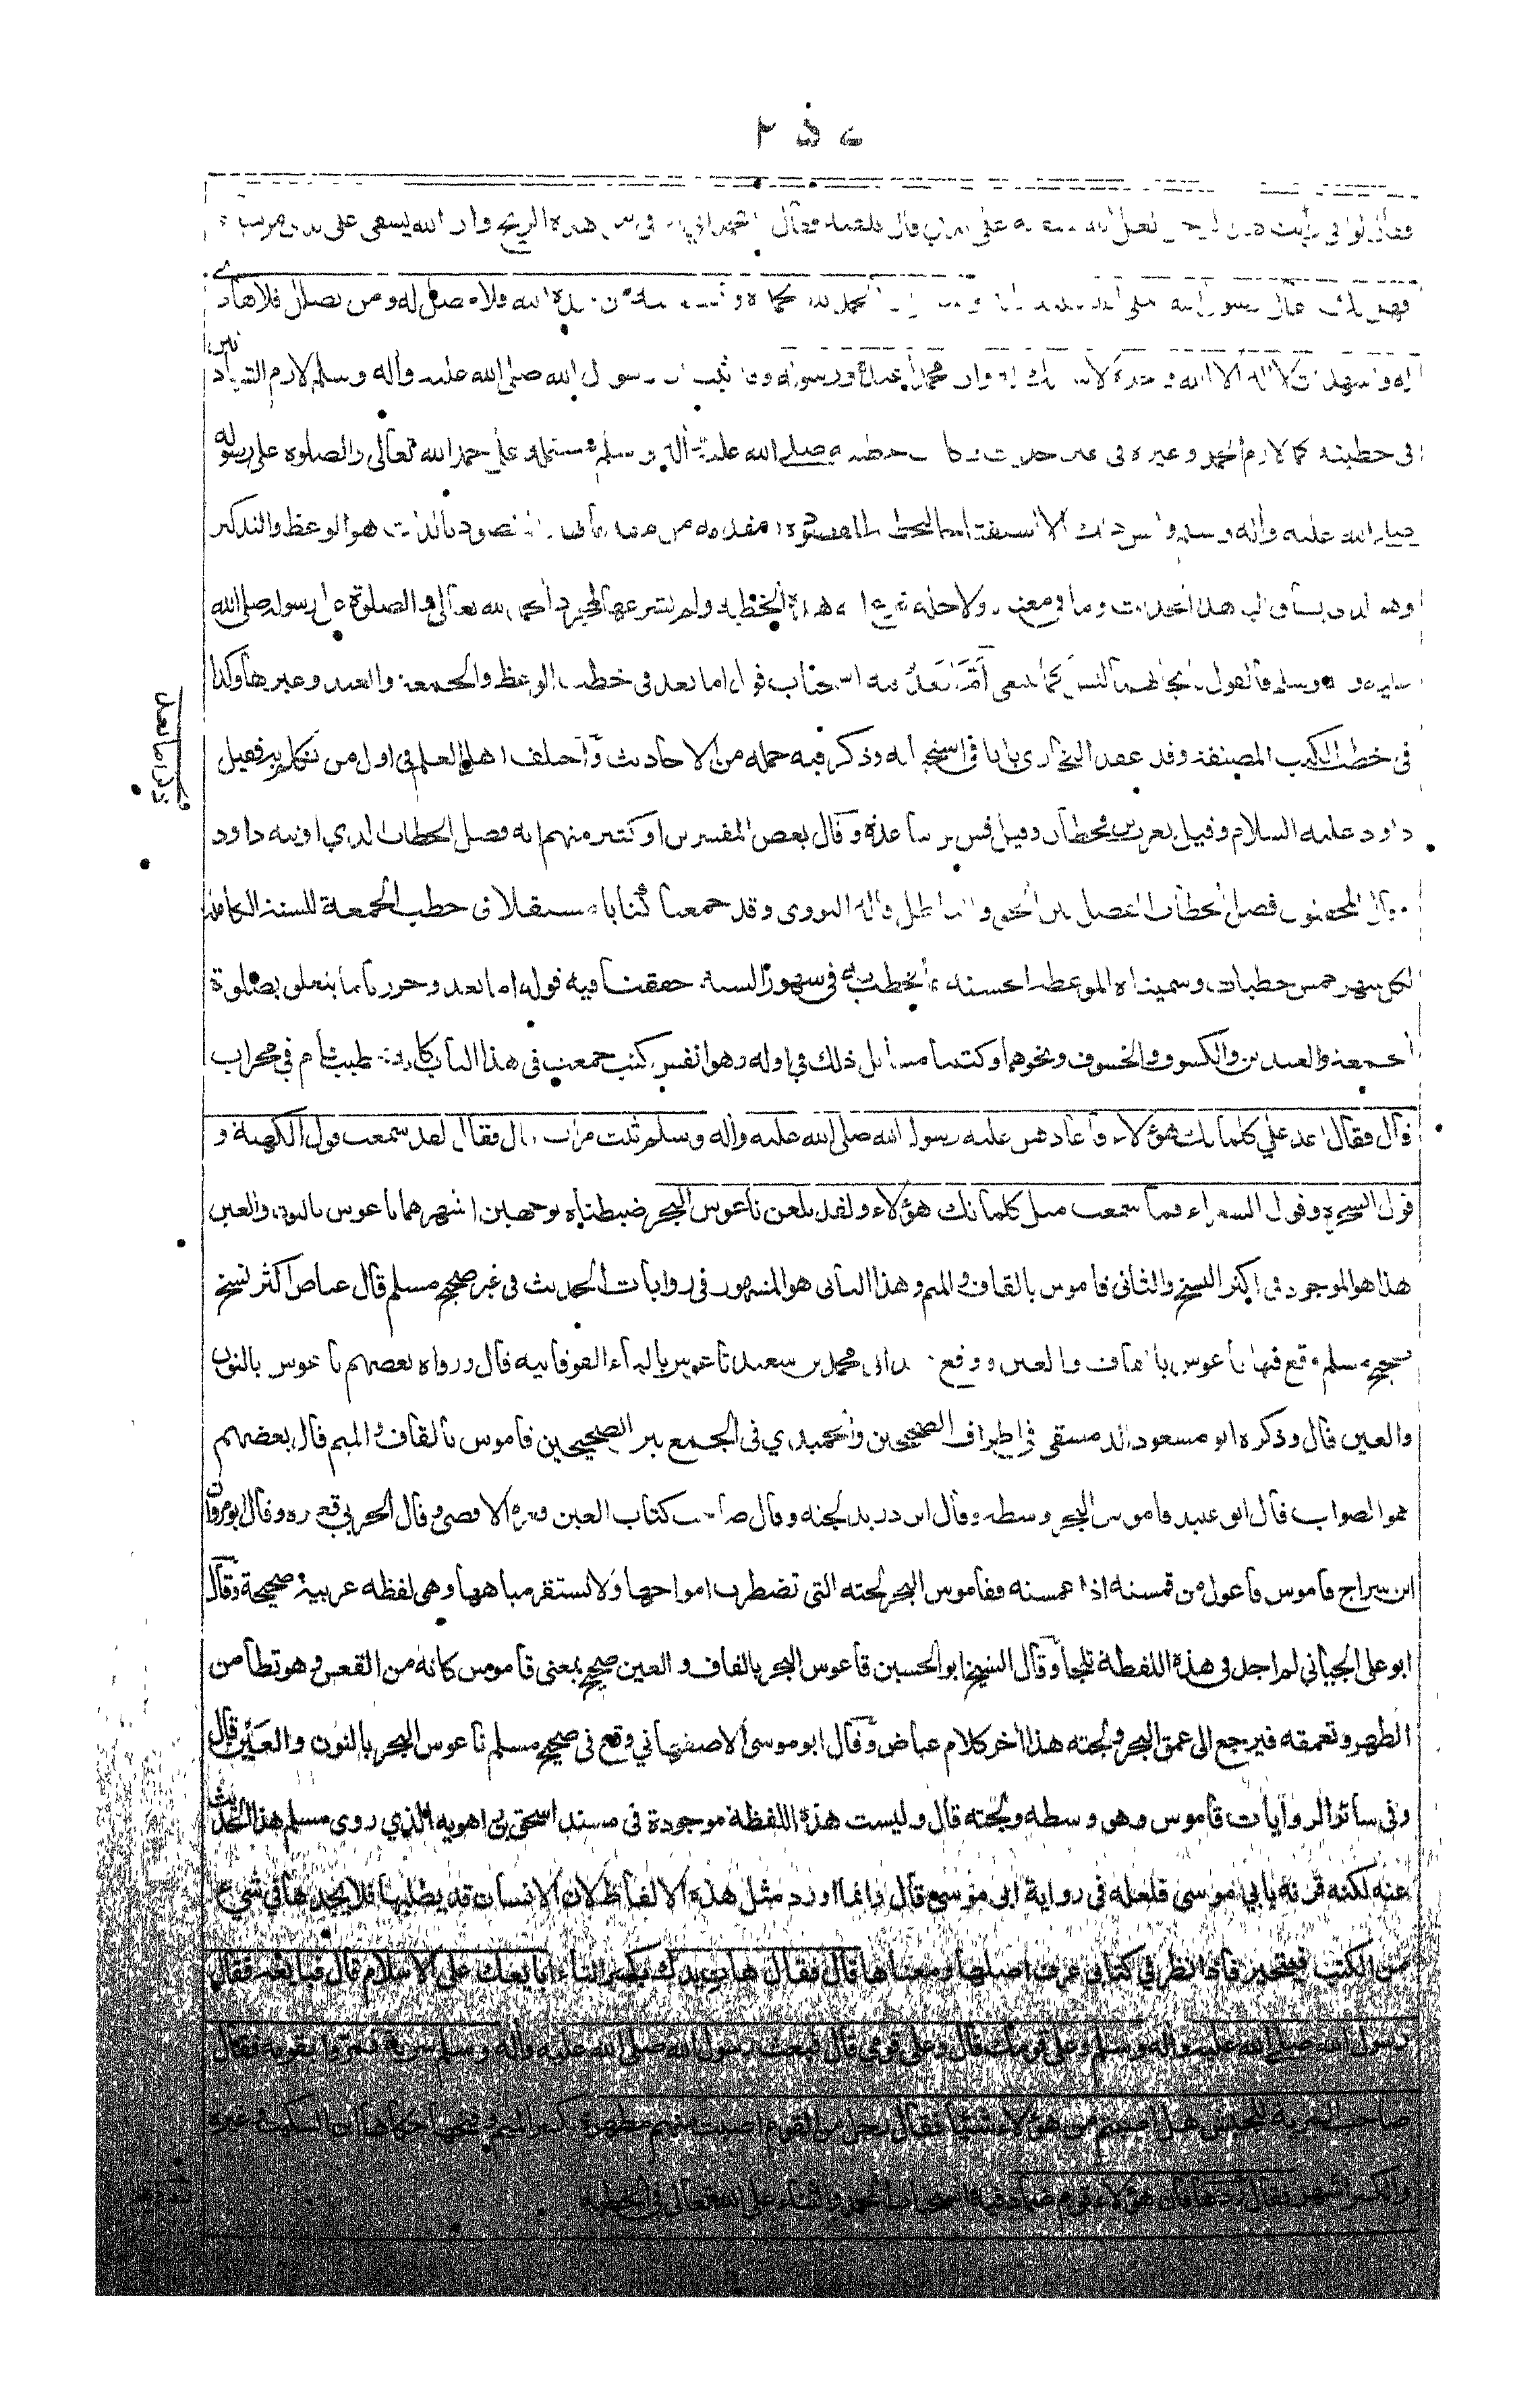 فقال لو اني رأيت هذا الرجل لعل الله يشفيه على يدي قال فلقيه فقال يا محمد اني ارقي من هذه الريح وان الله يشفي على يدي من يشاء
فهل لك فقال رسول الله صلى الله عليه وسلم ان الحمد لله نحمده ونستعينه من يهده الله فلا مضل له ومن يضلل فلا هادي
له واشهد ان لا اله الا الله وحده لا شريك له وان محمدا عبده ورسوله رسول الله صلى الله عليه وأله وسلم لازم التشهد
في خطبته كما لازم الحمد وغيره في غير حديث خطبه صلى الله عليه وأله وسلم مشتملة على حمد الله تعالى والصلوة على رسوله
صلى الله عليه وأله وسلم المقصود بالذات هو الوعظ والتذكير
هذا الحديث وما في معناه ولاجله هذه الخطبة ولم تشرع لمجرد الحمد لله تعالى والصلوة على رسوله صلى الله
عليه وأله وسلم فالقول اما بعد فيه استحباب قول اما بعد في خطب الوعظ والجمعة والعيد وغيرها وكذا
في خطب الكتب المصنفة وقد عقد البخاري بابا في استحبابه وذكر فيه جملة من الاحاديث واختلف اهل العلم في اول من تكلم به فقيل
داود عليه السلام وقيل يعرب بن قحطان وقيل قس بن ساعدة وقال بعض المفسرين او كثير منهم انه فصل الخطاب الذي اوتيه داود
وقال المحققون فصل الخطاب الفصل بين الحق والباطل قاله النووى وقد جمعنا كتابا مستقلا في خطب الجمعة للسنة الكاملة
لكل شهر خمس خطبات وسميناه الموعظة الحسنة بما يخطب به في شهور السنة حققنا فيه قوله اما بعد وحررنا ما يتعلق بصلوة
الجمعة والعيدين والكسوف والخسوف ونحوها وكتبنا مسائل ذلك في اوله وهو انفس كتب جمعت في هذا الباب في محراب
قال فقال اعد علي كلماتك هؤلاء فاعادهن عليه رسول الله صلى الله عليه وأله وسلم ثلث مرات قال فقال لقد سمعت قول الكهنة و
قول السحرة وقول الشعراء فما سمعت مثل كلماتك هؤلاء ولقد بلغن ناعوس البحر ضبطناه بوجهين اشهرهما ناعوس بالنون والعين
هذا هو الموجود في اكثر النسخ والثانى قاموس بالقاف والميم وهذا الثانى هو المشهور في روايات الحديث في غير صحيح مسلم قال عياض اكثر نسخ
صحيح مسلم وقع فيها قاعوس بالقاف والعين ووقع عند ابى محمد بن سعيد تاعوس بالتاء الفوقانية قال ورواه بعضهم ناعوس بالنون
والعين قال وذكره ابو مسعود الدمشقى في اطراف الصحيحين والحميدي في الجمع بين الصحيحين قاموس بالقاف والميم قال بعضهم
هو الصواب قال ابو عبيد قاموس البحر وسطه وقال ابن دريد لجته وقال صاحب كتاب العين قعره الاقصى وقال الحربي قعره وقال ابو مروان
ابن سراج قاموس فاعول من قمسته اذا غمسته فقاموس البحر لجته التي تضطرب امواجها ولا تستقر مياهها وهي لفظة عربية صحيحة وقال
ابو على الجياني لم اجد في هذه اللفظة ثلجا وقال الشيخ ابو الحسين قاعوس البحر بالقاف والعين صحيح بمعنى قاموس كانه من القعس وهو تطامن
الظهر وتعمقه فيرجع الى عمق البحر ولجته هذا أخر كلام عياض وقال ابو موسى الاصفهاني وقع في صحيح مسلم ناعوس البحر بالنون والعين قال
وفي سائر الروايات قاموس وهو وسطه ولجته قال وليست هذه اللفظة موجودة في مسند اسحق بن راهويه الذي روى مسلم هذا الحديث
عنه لكنه قرنه بابي موسى فلعله في رواية ابى موسى قال وانما اورد مثل هذه الالفاظ لان الانسان قد يطلبها فلا يجدها في شيء
من الكتب فيتحير فاذا نظر في كتابي عرف اصلها ومعناها قال فقال هات يدك بكسر التاء ابايعك على الاسلام قال فبايعه فقال
رسول الله صلى الله عليه وأله وسلم وعلى قومك قال وعلى قومي قال فبعث رسول الله صلى الله عليه وأله وسلم سرية فمروا بقومه فقال
صاحب السرية للجيش هل اصبتم من هؤلاء شيئا فقال رجل من القوم اصبت منهم مطهرة بكسر الميم وفتحها حكاهما ابن السكيت وغيره
والكسر اشهر فقال ردوها فان هؤلاء قوم ضماد فيه استحباب الحمد والثناء على الله تعالى في الخطبة